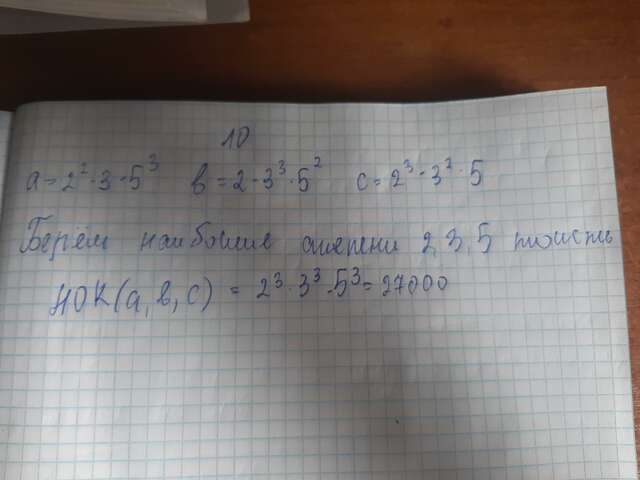 10
a = 2² · 3 · 5³ в = 2 · 3³ · 5² c = 2³ · 3² · 5
Берём наибольшие степени 2, 3, 5
НОК(a, в, c) = 2³ · 3³ · 5³ = 27000